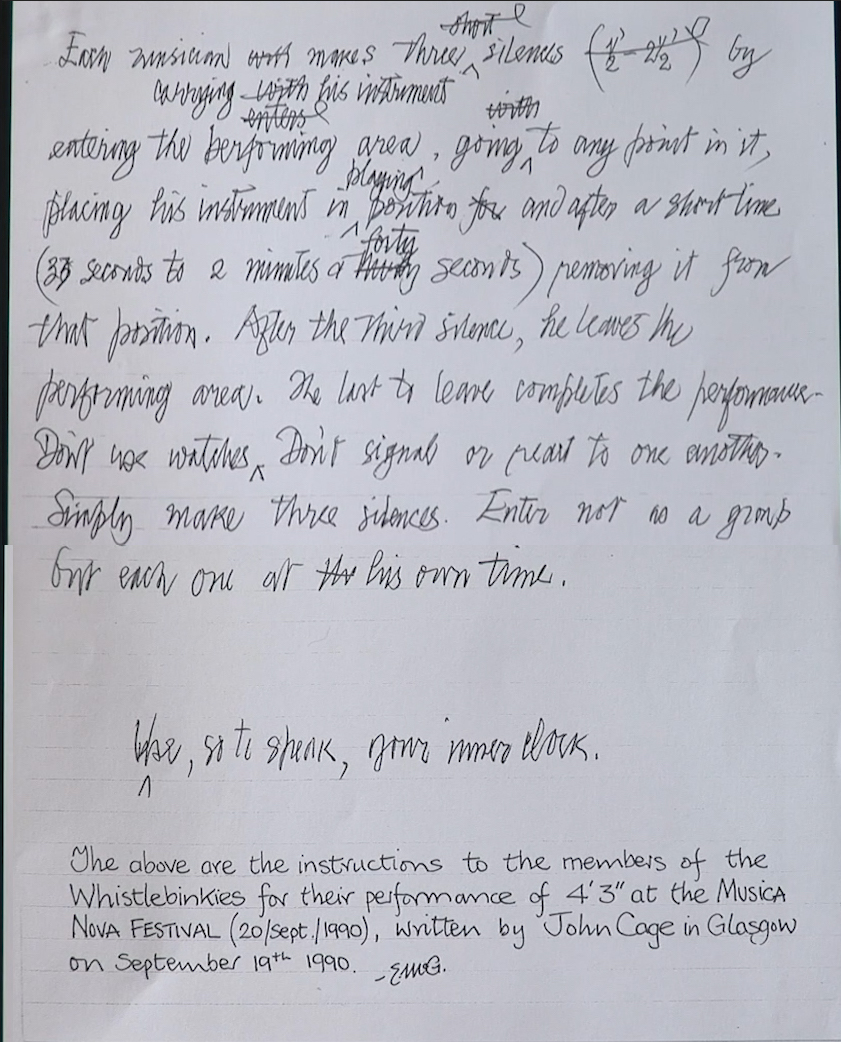 short
Each musician with makes three silences (½' – 2½') by
carrying with his instrument
enters with
entering the performing area, going to any point in it,
playing
placing his instrument in position for and after a short time
forty
(35 seconds to 2 minutes & thirty seconds) removing it from
that position. After the third silence, he leaves the
performing area. The last to leave completes the performance.
Don't use watches. Don't signal or react to one another.
Simply make three silences. Enter not as a group
but each one at the his own time.
Use, so to speak, your inner clock.
The above are the instructions to the members of the
Whistlebinkies for their performance of 4'3" at the MUSICA
NOVA FESTIVAL (20/Sept./1990), written by John Cage in Glasgow
on September 19th 1990. - EMcG.